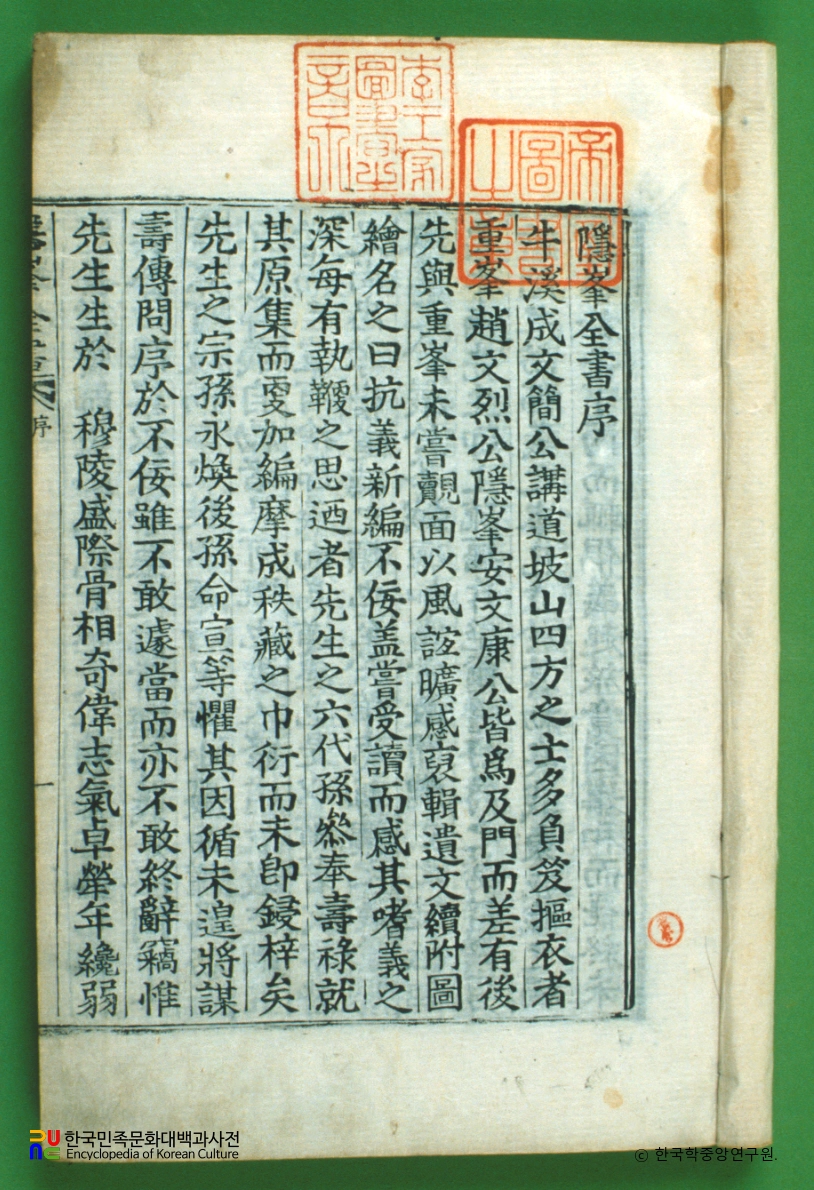 隱峯全書序
牛溪成文簡公講道坡山四方之士多負笈摳衣者
重峯趙文烈公隱峯安文康公皆爲及門而差有後
先與重峯未嘗覿面以風誼曠感裒輯遺文續附圖
繪名之曰抗義新編不佞盖嘗受讀而感其嗜義之
深每有執鞭之思迺者先生之六代孫叅奉壽祿就
其原集而更加編摩成秩藏之巾衍而未卽鋟梓矣
先生之宗孫永煥後孫命宣等懼其因循未遑將謀
壽傳問序於不佞雖不敢遽當而亦不敢終辭竊惟
先生生於 穆陵盛際骨相奇偉志氣卓犖年纔弱
隱峯全書 序
一
李王家圖書之章
한국민족문화대백과사전
Encyclopedia of Korean Culture
© 한국학중앙연구원.